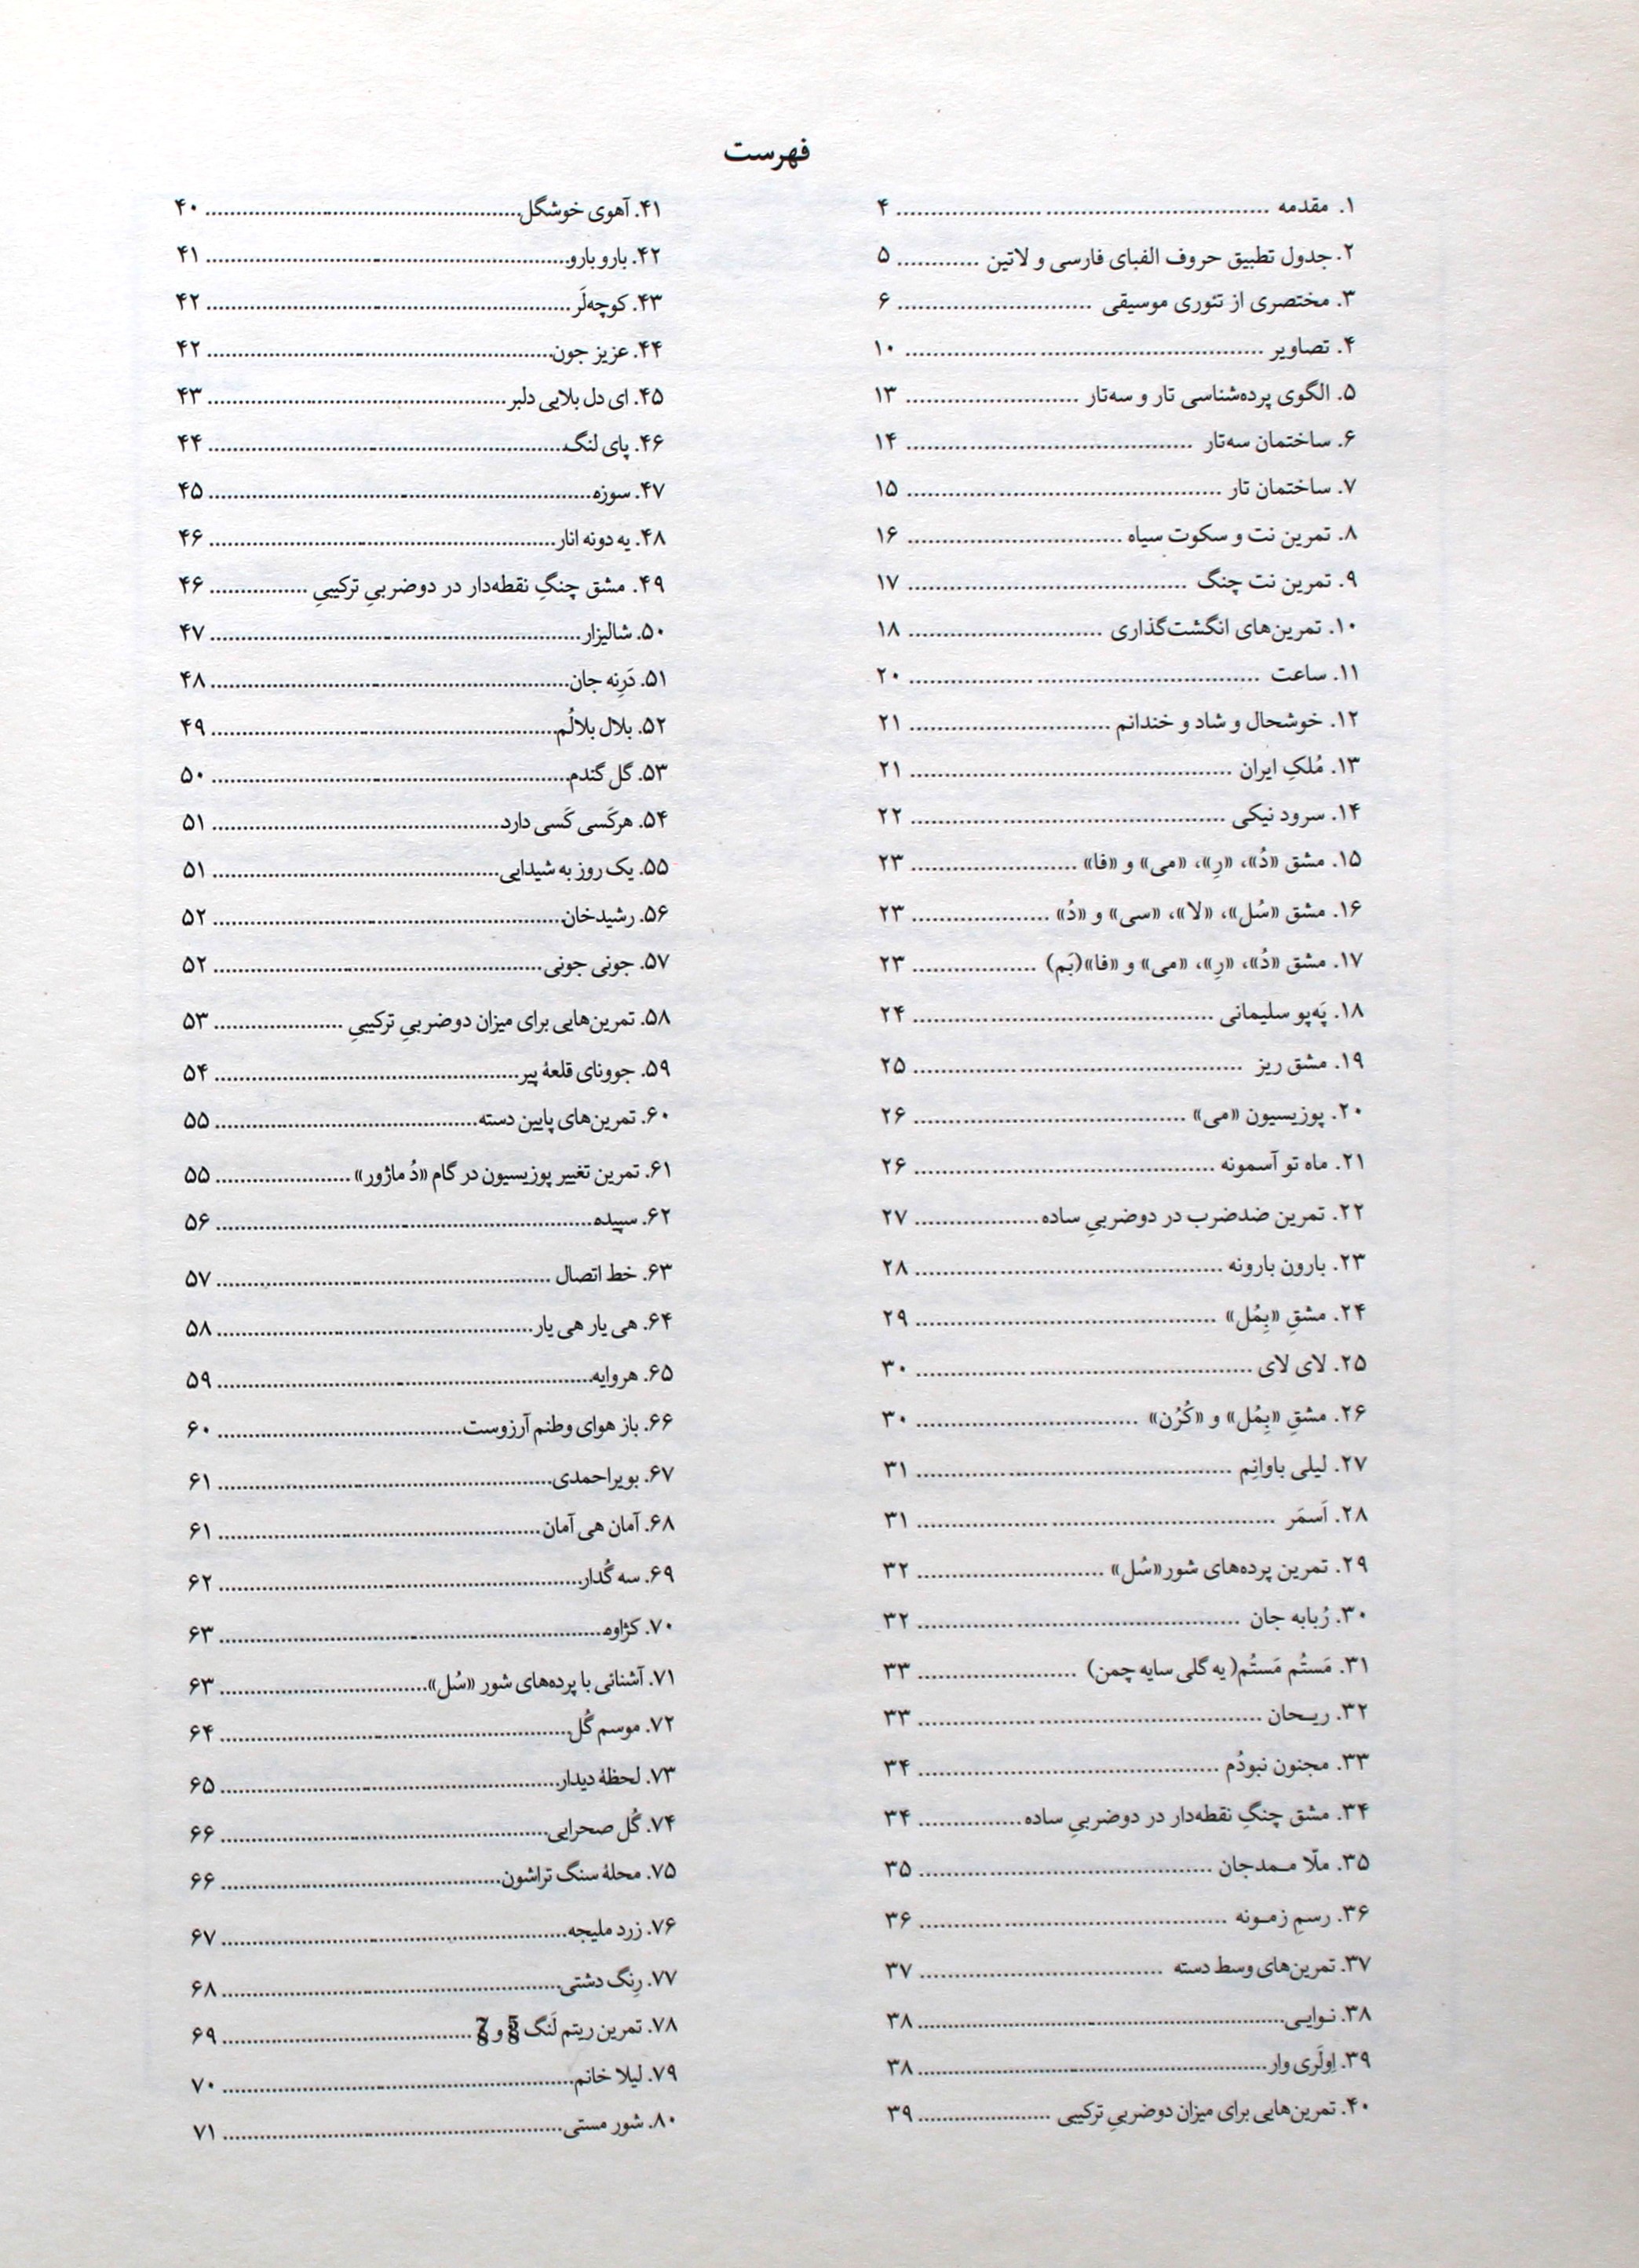 فهرست
۱. مقدمه ........ ۴
۲. جدول تطبیق حروف الفبای فارسی و لاتین ........ ۵
۳. مختصری از تئوری موسیقی ........ ۶
۴. تصاویر ........ ۱۰
۵. الگوی پرده‌شناسی تار و سه‌تار ........ ۱۳
۶. ساختمان سه‌تار ........ ۱۴
۷. ساختمان تار ........ ۱۵
۸. تمرین نت و سکوت سیاه ........ ۱۶
۹. تمرین نت چنگ ........ ۱۷
۱۰. تمرین‌های انگشت‌گذاری ........ ۱۸
۱۱. ساعت ........ ۲۰
۱۲. خوشحال و شاد و خندانم ........ ۲۱
۱۳. مُلکِ ایران ........ ۲۱
۱۴. سرود نیکی ........ ۲۲
۱۵. مشق «دُ»، «رِ»، «می» و «فا» ........ ۲۳
۱۶. مشق «سُل»، «لا»، «سی» و «دُ» ........ ۲۳
۱۷. مشق «دُ»، «رِ»، «می» و «فا»(بَم) ........ ۲۳
۱۸. پَه‌پو سلیمانی ........ ۲۴
۱۹. مشق ریز ........ ۲۵
۲۰. پوزیسیون «می» ........ ۲۶
۲۱. ماه تو آسمونه ........ ۲۶
۲۲. تمرین ضدضرب در دوضربیِ ساده ........ ۲۷
۲۳. بارون بارونه ........ ۲۸
۲۴. مشقِ «بِمُل» ........ ۲۹
۲۵. لای لای ........ ۳۰
۲۶. مشقِ «بِمُل» و «کُرُن» ........ ۳۰
۲۷. لیلی باوانِم ........ ۳۱
۲۸. اَسمَر ........ ۳۱
۲۹. تمرین پرده‌های شور«سُل» ........ ۳۲
۳۰. رُبابه جان ........ ۳۲
۳۱. مَستُم مَستُم(یه گلی سایه چمن) ........ ۳۳
۳۲. ریحان ........ ۳۳
۳۳. مجنون نبودُم ........ ۳۴
۳۴. مشق چنگِ نقطه‌دار در دوضربیِ ساده ........ ۳۴
۳۵. ملّا ممدجان ........ ۳۵
۳۶. رسمِ زمونه ........ ۳۶
۳۷. تمرین‌های وسط دسته ........ ۳۷
۳۸. نوایی ........ ۳۸
۳۹. اِولَری وار ........ ۳۸
۴۰. تمرین‌هایی برای میزان دوضربیِ ترکیبی ........ ۳۹
۴۱. آهوی خوشگل ........ ۴۰
۴۲. بارو بارو ........ ۴۱
۴۳. کوچه‌لَر ........ ۴۲
۴۴. عزیز جون ........ ۴۲
۴۵. ای دل بلایی دلبر ........ ۴۳
۴۶. پای لنگ ........ ۴۴
۴۷. سوزه ........ ۴۵
۴۸. یه دونه انار ........ ۴۶
۴۹. مشق چنگِ نقطه‌دار در دوضربیِ ترکیبیِ ........ ۴۶
۵۰. شالیزار ........ ۴۷
۵۱. دَرِنه جان ........ ۴۸
۵۲. بلال بلالُم ........ ۴۹
۵۳. گل گندم ........ ۵۰
۵۴. هرکَسی کَسی دارد ........ ۵۱
۵۵. یک روز به شیدایی ........ ۵۱
۵۶. رشیدخان ........ ۵۲
۵۷. جونی جونی ........ ۵۲
۵۸. تمرین‌هایی برای میزان دوضربیِ ترکیبیِ ........ ۵۳
۵۹. جوونای قلعهٔ پیر ........ ۵۴
۶۰. تمرین‌های پایین دسته ........ ۵۵
۶۱. تمرین تغییر پوزیسیون در گام «دُ ماژور» ........ ۵۵
۶۲. سپیده ........ ۵۶
۶۳. خط اتصال ........ ۵۷
۶۴. هی یار هی یار ........ ۵۸
۶۵. هروایه ........ ۵۹
۶۶. باز هوای وطنم آرزوست ........ ۶۰
۶۷. بویراحمدی ........ ۶۱
۶۸. آمان هی آمان ........ ۶۱
۶۹. سه گُدار ........ ۶۲
۷۰. کژاوه ........ ۶۳
۷۱. آشنائی با پرده‌های شور «سُل» ........ ۶۳
۷۲. موسم گُل ........ ۶۴
۷۳. لحظهٔ دیدار ........ ۶۵
۷۴. گُل صحرایی ........ ۶۶
۷۵. محلهٔ سنگ تراشون ........ ۶۶
۷۶. زرد ملیجه ........ ۶۷
۷۷. رِنگ دشتی ........ ۶۸
۷۸. تمرین ریتم لَنگ 5/8 و 7/8 ........ ۶۹
۷۹. لیلا خانم ........ ۷۰
۸۰. شور مستی ........ ۷۱